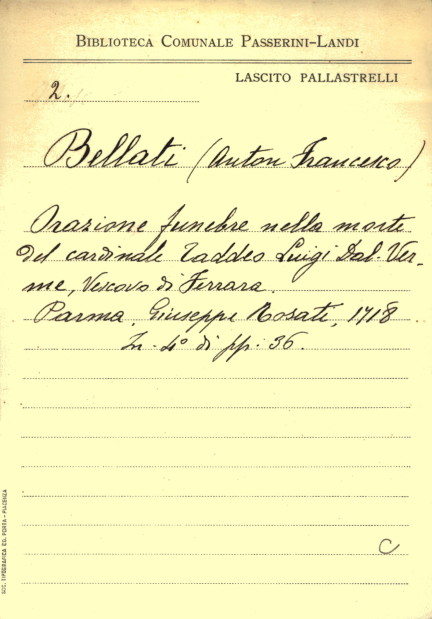 BIBLIOTECA COMUNALE PASSERINI-LANDI
LASCITO PALLASTRELLI
2.
Bellati (Anton Francesco)
Orazione funebre nella morte
del cardinale Taddeo Luigi Dal-Ver-
me, Vescovo di Ferrara.
Parma, Giuseppe Rosati, 1718
In-4° di pp. 36.
C
SOC. TIPOGRAFICA ED. PORTA - PIACENZA